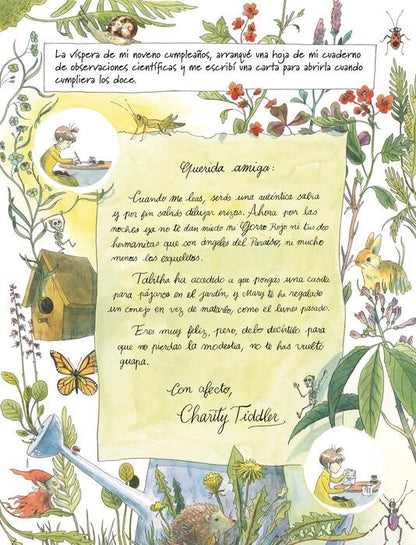 La víspera de mi noveno cumpleaños, arranqué una hoja de mi cuaderno
de observaciones científicas y me escribí una carta para abrirla cuando
cumpliera los doce.
Querida amiga:
Cuando me leas, serás una auténtica sabia
y por fin sabrás dibujar erizos. Ahora por las
noches ya no te dan miedo mi Gorro Rojo ni tus dos
hermanitas que son ángeles del Paraíso, ni mucho
menos los esqueletos.
Tabitha ha accedido a que pongas una casita
para pájaros en el jardín, y Mary te ha regalado
un conejo en vez de matarlo, como el lunes pasado.
Eres muy feliz, pero, debo decírtelo para
que no pierdas la modestia, no te has vuelto
guapa.
Con afecto,
Charity Tiddler